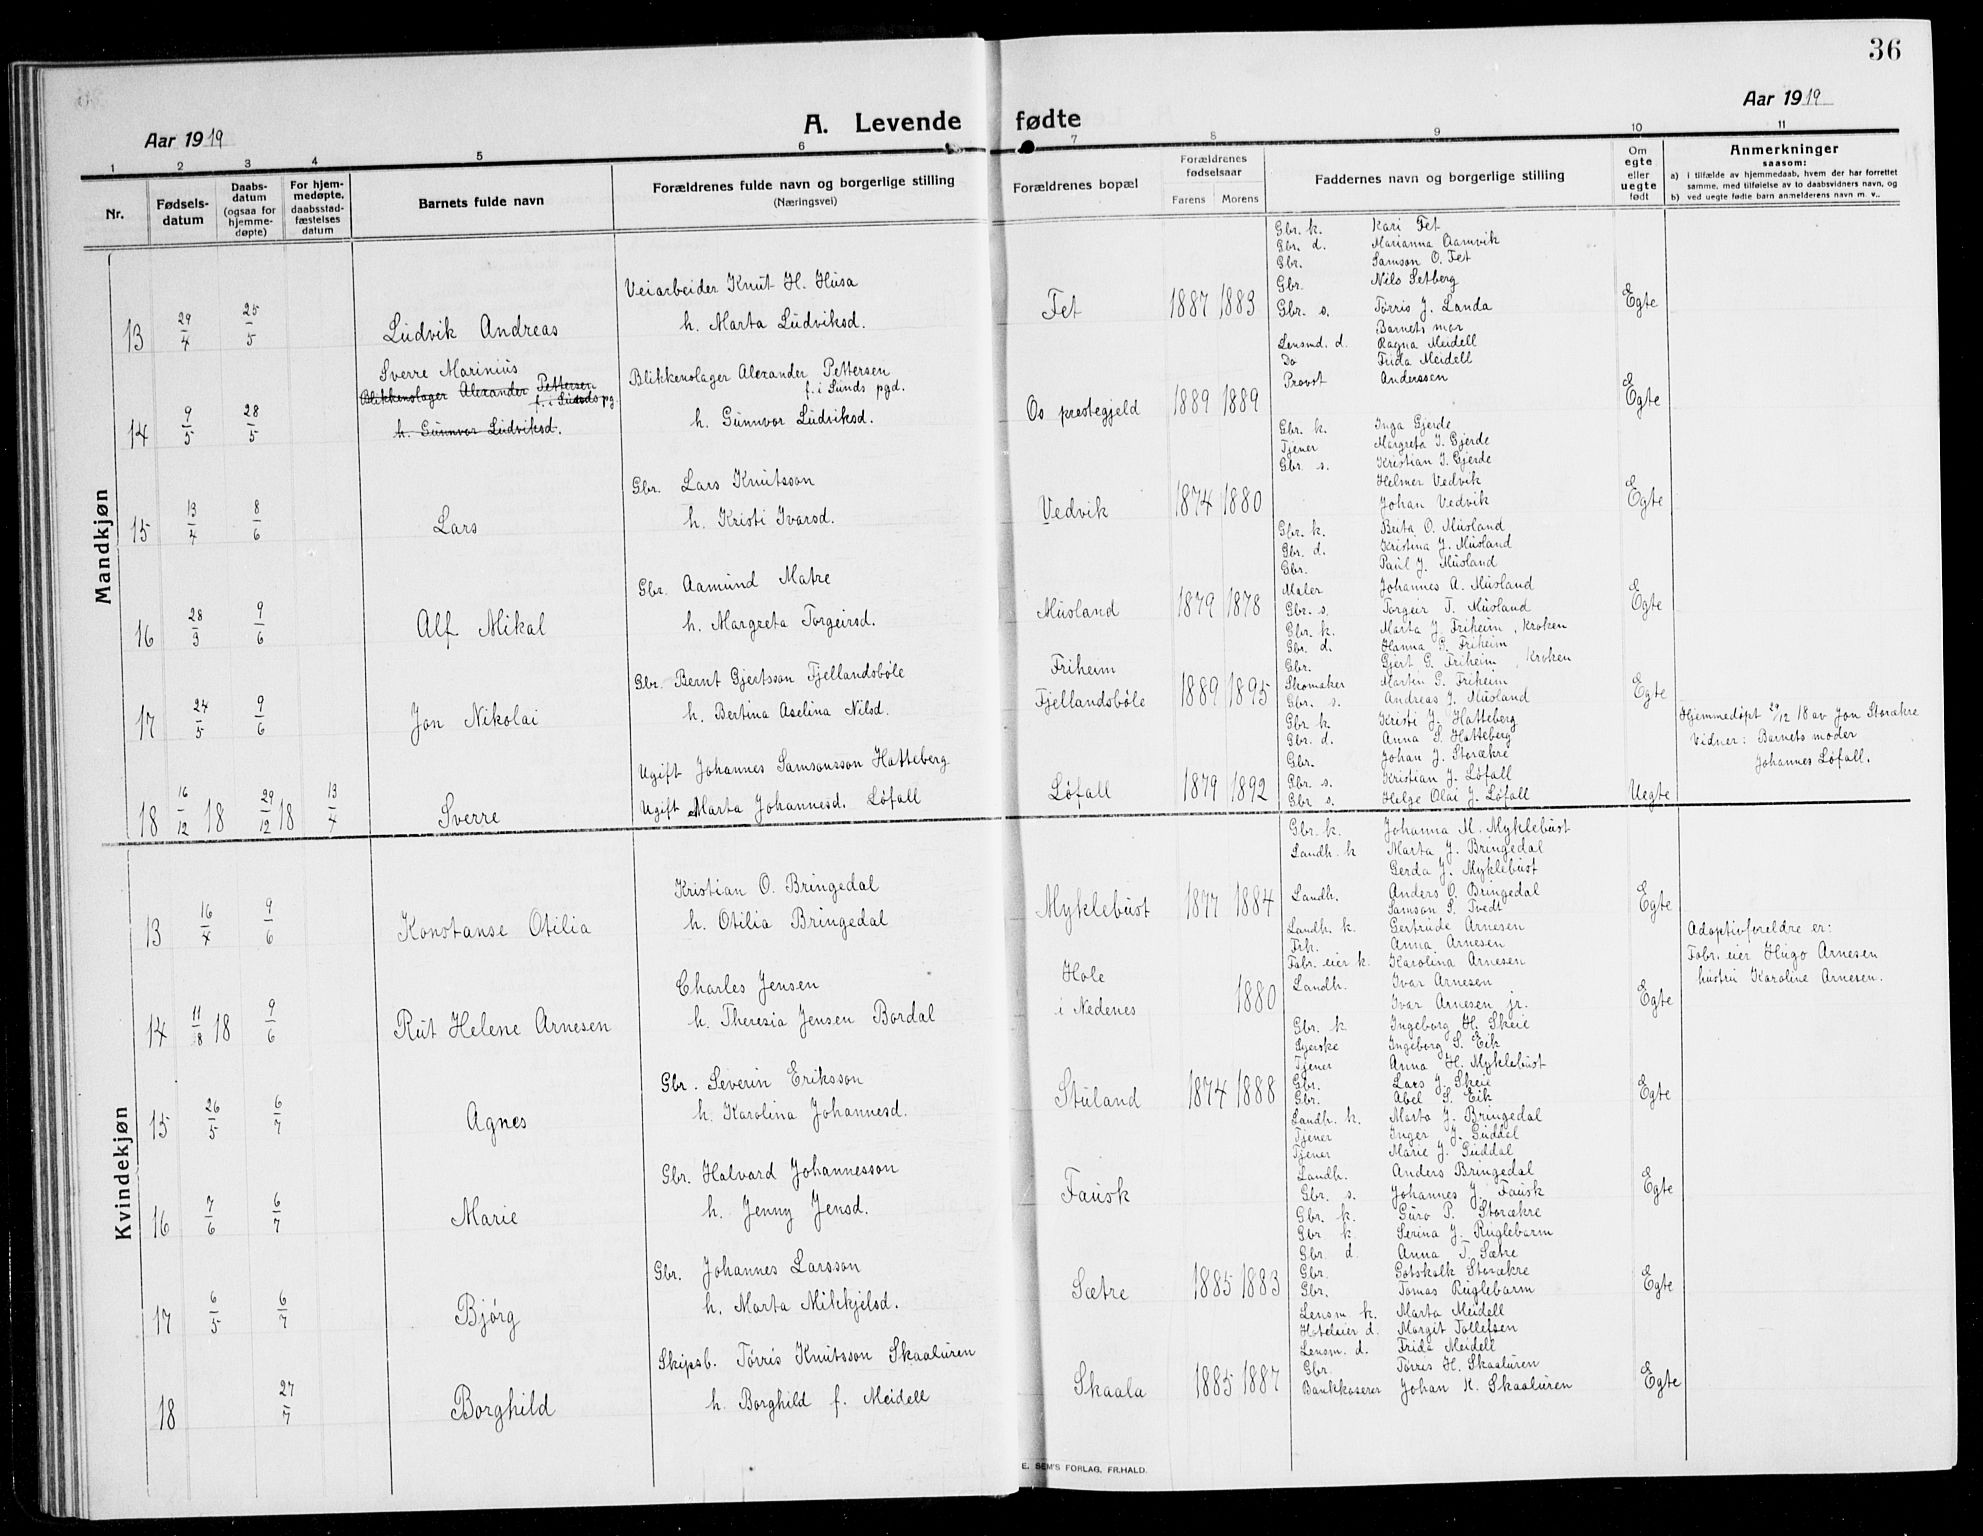 36
A. Levende fødte
Aar 1919
Aar 1919
1 2 3 4 5 6 7 8 9 10 11
Nr.
Fødsels-
datum
Daabs-
datum
(ogsaa for
hjemme-
døpte)
For hjem-
medøpte,
daabsstad-
fæstelses
datum
Barnets fulde navn
Forældrenes fulde navn og borgerlige stilling
(Næringsvei)
Forældrenes bopæl
Forældrenes
fødselsaar
Farens Morens
Faddernes navn og borgerlige stilling
Om
egte
eller
uegte
født
Anmerkninger
saasom:
a) i tilfælde av hjemmedaab, hvem der har forrettet
samme, med tilføielse av to daabsvidners navn, og
b) ved uegte fødte barn anmelderens navn m. v..
Mandkjøn
13 29/4 25/5 Ludvik Andreas
Veiarbeider Knut H. Husa
h. Marta Ludviksd.
Fet 1887 1883
Gbr. k. Kari Fet
Gbr. d. Marianna Aamvik
Gbr. Samson O. Fet
Gbr. Nils Setberg
Gbr. s. Tørris J. Landa
Egte
14 9/5 28/5 Sverre Marinius
Blikkenslager Alexander Pettersen
f. i Sunds pg.
h. Gunnvor Ludviksd.
Blikkenslager Alexander Pettersen
f. i Sunds pgd.
h. Gunnvor Ludviksd.
Os prestegjeld 1889 1889
Barnets mor
Lensmd. d. Ragna Meidell
Do Frida Meidell
Provst Anderssen
Egte
15 13/4 8/6 Lars
Gbr. Lars Knutsson
h. Kristi Ivarsd.
Vedvik 1874 1880
Gbr. k. Inga Gjerde
Tjener Margreta I. Gjerde
Gbr. s. Kristian I. Gjerde
Helmer Vedvik
Johan Vedvik
Egte
16 28/3 9/6 Alf Mikal
Gbr. Aamund Matre
h. Margreta Torgeirsd.
Musland 1879 1878
Gbr. k. Brita O. Musland
Gbr. d. Kristina J. Musland
Gbr. Paul J. Musland
Maler Johannes A. Musland
Gbr. s. Torgeir T. Musland
Egte
17 24/5 9/6 Jon Nikolai
Gbr. Bernt Gjertsson Fjellandsbøle
h. Bertina Aselina Nilsd.
Friheim
Fjellandsbøle 1889 1895
Gbr. k. Marta J. Friheim, Kroken
Gbr. d. Hanna G. Friheim
Gbr. Gjert G. Friheim, Kroken
Skomaker Martin G. Friheim
Gbr. s. Andreas J. Musland
Egte
18 16/12 18 29/12 18 13/4 Sverre
Ugift Johannes Samsonsson Hatteberg
Ugift Marta Johannesd. Løfall
Løfall 1879 1892
Gbr. k. Kristi J. Hatteberg
Gbr. d. Anna S. Hatteberg
Gbr. Johan J. Storækre
Gbr. s. Kristian J. Løfall
Gbr s. Helge Olai J. Løfall
Uegte
Hjemmedøpt 29/12 18 av Jon Storækre
Vidner: Barnets moder
Johannes Løfall.
Kvindekjøn
13 16/4 9/6 Konstanse Otilia
Kristian O. Bringedal
h. Otilia Bringedal
Myklebust 1877 1884
Gbr. k. Johanna M. Myklebust
Landh. k Marta J. Bringedal
Gerda J. Myklebust
Landh. Anders O. Bringedal
Samson S. Tvedt
Egte
14 11/8 18 9/6 Rut Helene Arnesen
Charles Jensen
h. Theresia Jensen Bordal
Hole
i Nedenes 1880
Landh. k. Gertrude Arnesen
Frk. Anna Arnesen
Fabr. eier k. Karolina Arnesen
Landh. Ivar Arnesen
Ivar Arnesen jr.
Egte
Adoptivforeldre er:
Fabr. eier Hugo Arnesen
hustru Karoline Arnesen.
15 26/5 6/7 Agnes
Gbr. Severin Eriksson
h. Karolina Johannesd.
Stuland 1874 1888
Gbr. k Ingeborg H. Skeie
Syerske Ingeborg S. Eik
Tjener Anna H. Myklebust
Gbr. Lars J. Skeie
Gbr. Abel S. Eik
Egte
16 7/6 6/7 Marie
Gbr. Halvard Johannesson
h. Jenny Jensd.
Fausk
Landh. k. Marta J. Bringedal
Tjener Inger J. Guddal
Tjener Marie J. Guddal
Landh. Anders Bringedal
Gbr. s. Johannes J. Fausk
Egte
17 6/5 6/7 Bjørg
Gbr. Johannes Larsson
h. Marta Mikkjelsd.
Sætre 1885 1883
Gbr. k. Guro P. Storækre
Gbr k. Serina J. Ruglebarm
Gbr d. Anna T. Sætre
Gbr. Gotskalk Storækre
Gbr. Tomas Ruglebarm
Egte
18 27/7 Borghild
Skipsb. Tørris Knutsson Skaaluren
h. Borghild f. Meidell
Skaala 1885 1887
Lensm k. Marta Meidell
Hoteleier d. Margit Tollefsen
Lensm. d. Frida Meidell
Gbr. Tørris H. Skaaluren
Bankkaserer Johan K. Skaaluren
Egte
E. SEM'S FORLAG, FR.HALD.